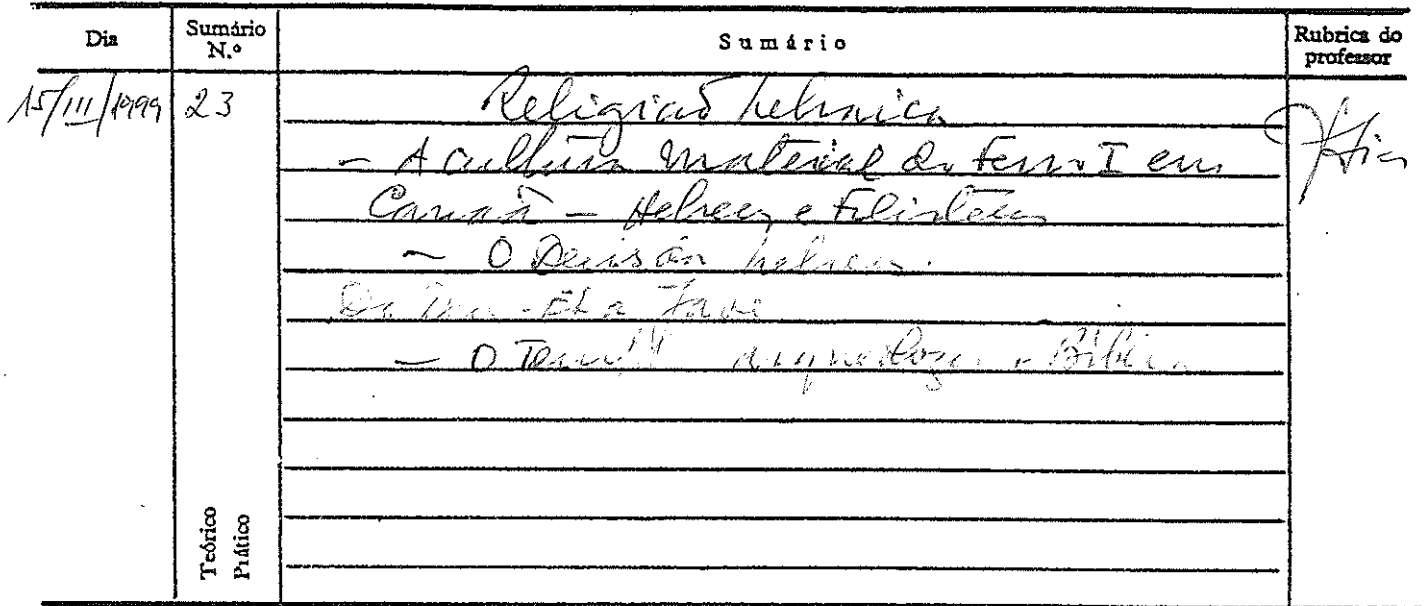 Dia
Sumário N.º
Sumário
Rubrica do professor
15/III/1999
23
Religião hebraica
- A cultura material do Ferro I em
Canaã - Hebreus e Filisteus
- O hebreu.
El a Javé
- O arqueologia e Bíblia
Teórico
Prático